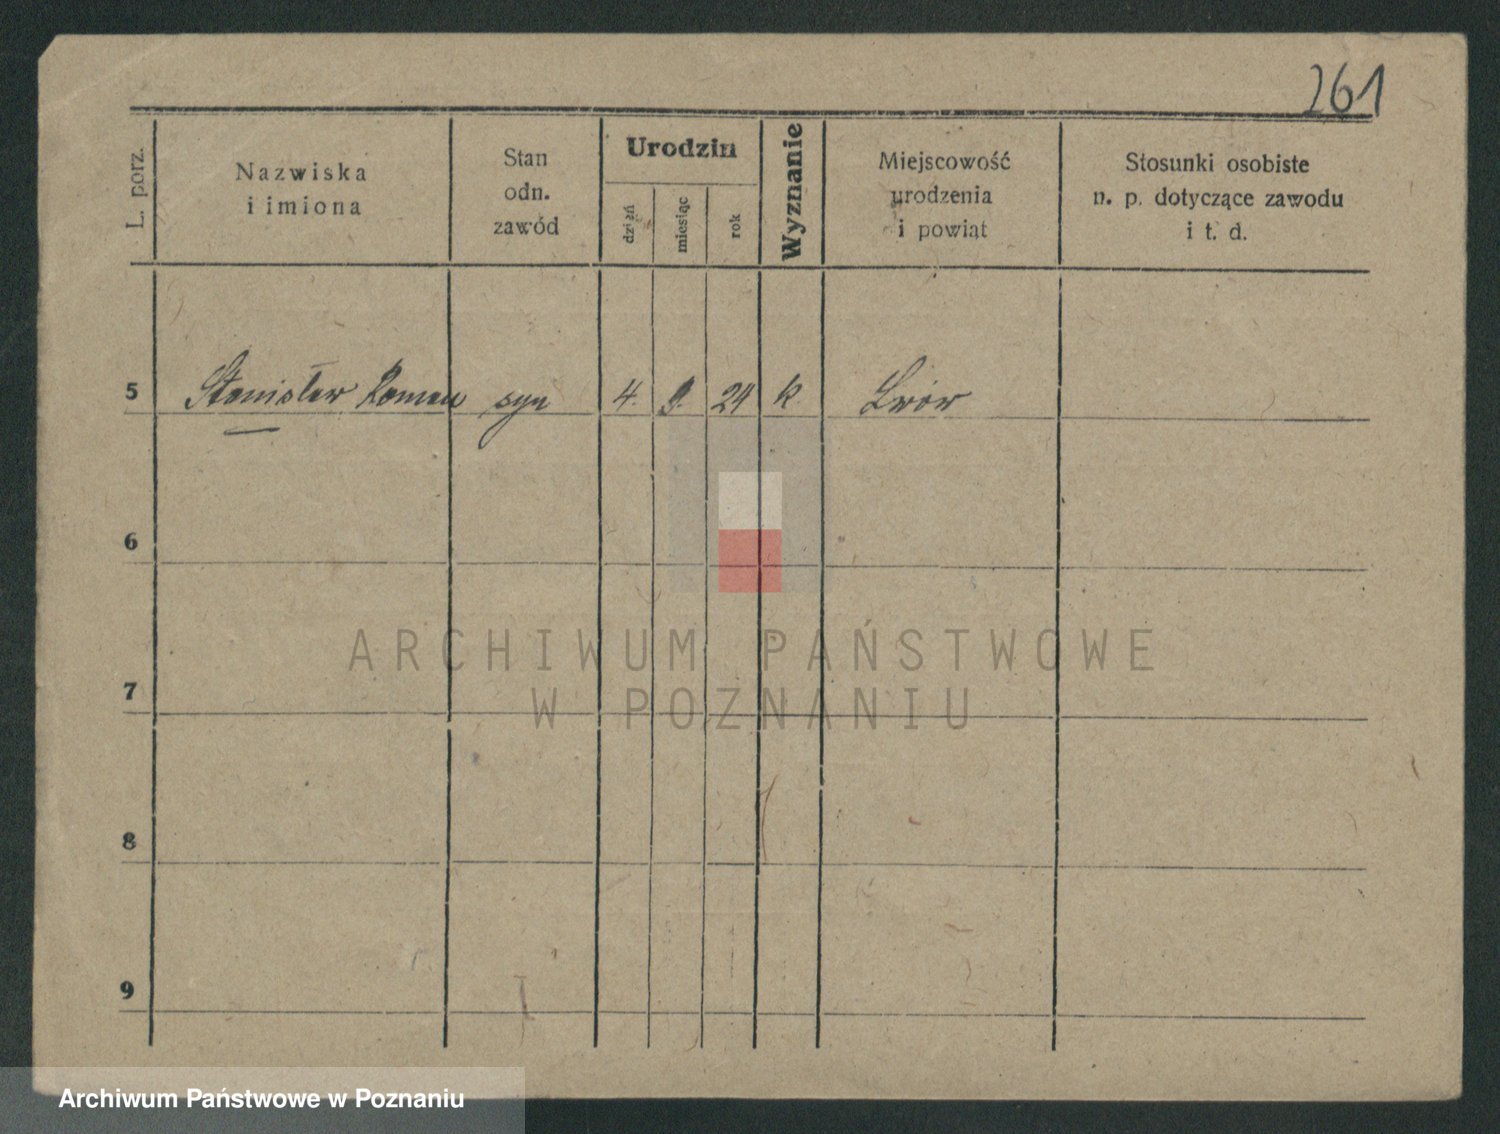 261
L. porz.
Nazwiska
i imiona
Stan
odn.
zawód
Urodzin
dzień
miesiąc
rok
Wyznanie
Miejscowość
urodzenia
i powiat
Stosunki osobiste
n. p. dotyczące zawodu
i t. d.
5 Stanisław Roman syn 4. 9. 24 k Lwów
6
ARCHIWUM PAŃSTWOWE
7
W POZNANIU
8
9
Archiwum Państwowe w Poznaniu